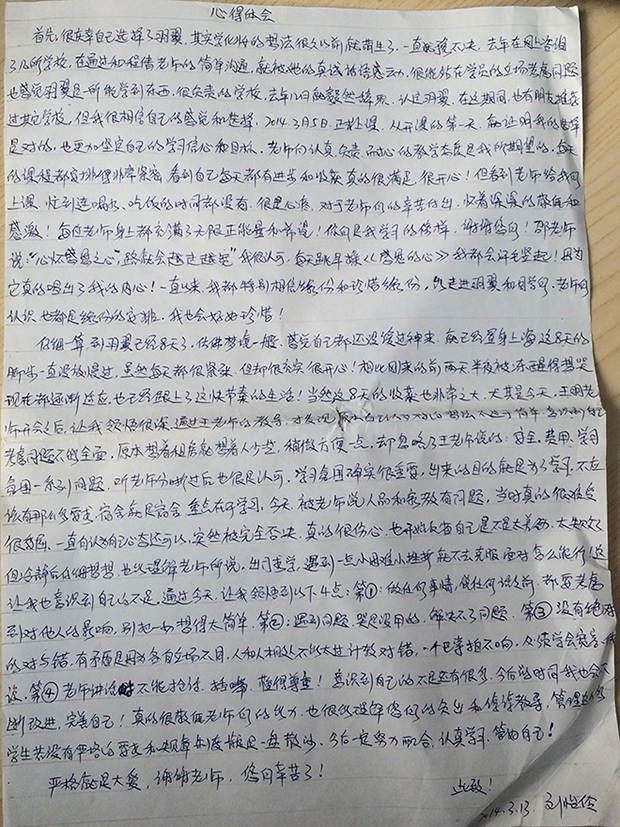 心得体会
首先,很庆幸自己选择了羽翼,其实学化妆的想法很久以前就萌生了,一直犹豫不决,去年在网上咨询
了几所学校,在通过和程倩老师的简单沟通,就被她的真诚话语感动,很能站在学员的立场考虑问题
也感觉羽翼是一所能学到东西,很负责的学校,去年12月就毅然辞职,认定羽翼,在这期间,也有朋友推荐
过其它学校,但我很相信自己的感觉和选择,2014.3月5日,正式上课,从开课的第一天,就证明我的选择
是对的,也更加坚定自己的学习信心和目标,老师们认真负责,耐心的教学态度是我所期望的,每天
的课程都安排得非常紧密,看到自己每天都有进步和收获真的很满足,很开心!但看到老师给我们
上课,忙到连喝水、吃饭的时间都没有,很是心疼,对于老师们的辛苦付出,怀着深深的敬佩和
感激!每位老师身上都充满了无限正能量和希望!你们是我学习的榜样,谢谢您们!邵老师
说:"心怀感恩之心,路就会越过越宽"我很认可,每天跳早操《感恩的心》我都会汗毛竖起!因为
它真的唱出了我的内心!一直以来,我都特别相信缘份和珍惜缘份,能走进羽翼和同学们、老师们
认识也都是缘份的安排,我也会好好珍惜!
仔细一算,到羽翼已经8天了,仿佛梦境一般,感觉自己都还没缓过神来,就已经置身上海,这8天的
脚步一直没放慢过,虽然每天都很紧张,但却很充实,很开心!相比回来的前两天半夜被冻醒得想哭
现在都逐渐适应,也已经跟上了这快节奏的生活!当然这8天的收获也非常之大,尤其是今天,王明老
师开会之后,让我领悟很深,通过王老师的教导,才发现
考虑问题不够全面,原本想着租房就想着人少些,稍微方便一点,却忽略了王老师说的:安全、费用、学习
氛围一系列问题,听老师分晰过后也很是认可,学习氛围确实很重要,出来的目的就是为了学习,不应
该有那么多要求,宿舍就是宿舍,重点在于学习,今天,被老师说人品和家教有问题,当时真的很难受
很委屈,一直自认为自己心态还可以,突然被完全否决,真的很伤心,也开始反省自己是不是太差劲,太失败了
但冷静后仔细想想,也能理解老师所说,出门在学,遇到一点小困难小挫折就不去克服、面对怎么能行!这
让我也意识到自己的不足,通过今天,让我领悟到以下4点:第①:做任何事情,说任何话之前,都要考虑
到对他人的影响,别把一切想得太简单,第②:遇到问题,哭是没用的,解决不了问题,第③没有绝对
的对与错,有矛盾是因为各自立场不同,人和人相处不能太过计较对错,一个巴掌拍不响,
第④老师讲话时不能抢话,插嘴,懂得尊重!意识到自己的不足还有很多,今后的时间我也会不
断改进,完善自己!真的很敬佩老师们的能力,也很能理解您们的负出和谆谆教导,管理这么多
学生若没有严格的要求和规章制度就是一盘散沙,今后一定努力配合,认真学习,管好自己!
严格就是大爱,谢谢老师,您们辛苦了!
此致!
2014.3.13